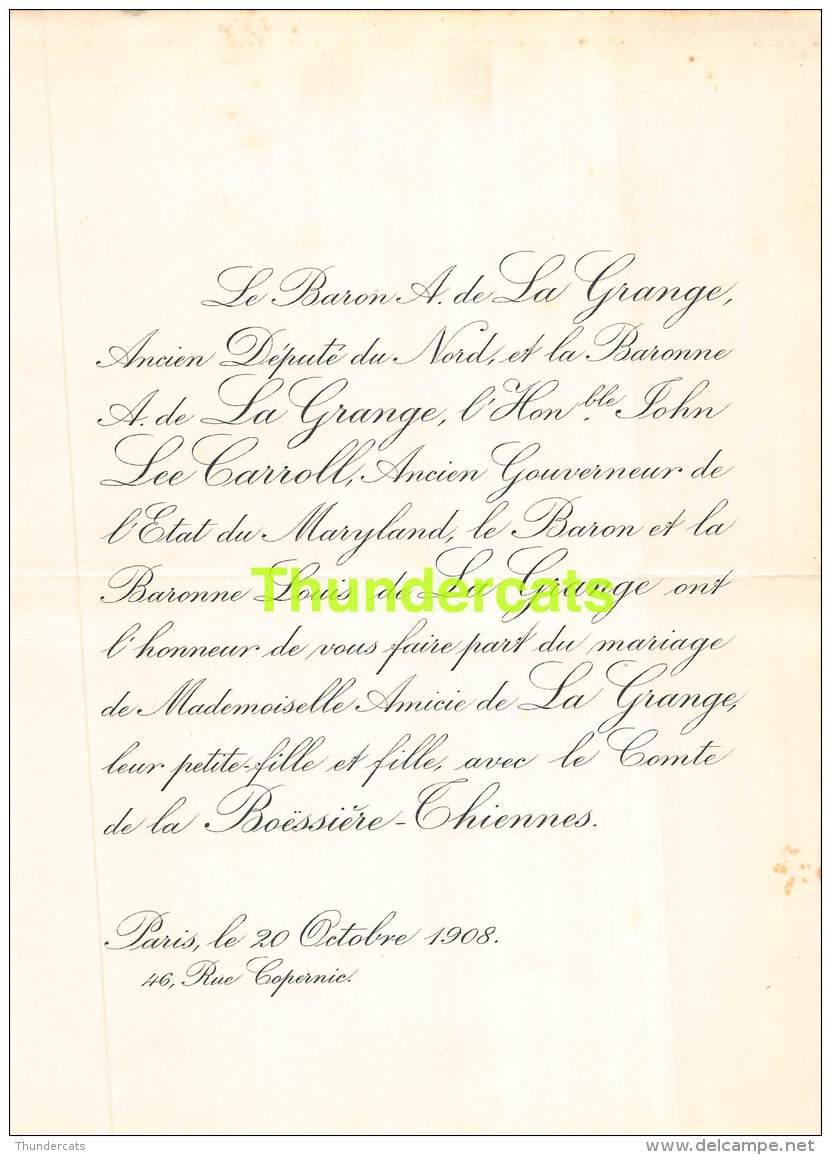 Le Baron A. de La Grange,
Ancien Député du Nord, et la Baronne
A. de La Grange, l'Hon.ble John
Lee Carroll, Ancien Gouverneur de
l'Etat du Maryland, le Baron et la
Baronne Louis de La Grange ont
Thundercats
l'honneur de vous faire part du mariage
de Mademoiselle Amicie de La Grange,
leur petite-fille et fille, avec le Comte
de la Boëssière-Thiennes.
Paris, le 20 Octobre 1908.
46, Rue Copernic.
Thundercats
delcampe.net